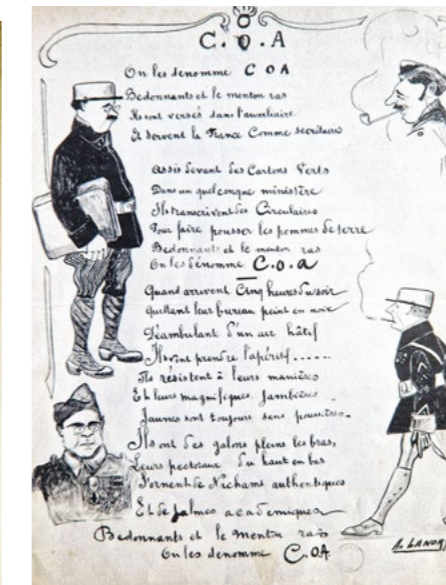 C. O. A
On les denomme C O A
Bedonnants et le menton ras
Ils sont versés dans l'auxiliaire
Et servent la France Comme secrétaires
Assis devant des Cartons Verts
Dans un quelconque ministère
Ils transcrivent des Circulaires
Pour faire pousser les pommes de terre
Bedonnants et le menton ras
On les dénomme C.O.A
Quand arrivent Cinq heures du soir
Quittant leur bureau peint en noir
Déambulant d'un air hâtif
Ils vont prendre l'apéritif.....
Ils résistent à leurs manières
Et leurs magnifiques jambières
Jaunes sont toujours sans poussières.
Ils ont des galons pleins les bras,
Leurs pectoraux du haut en bas
S'ornent de Nichams authentiques
Et de palmes académiques
Bedonnants et le menton ras
On les denomme C.OA